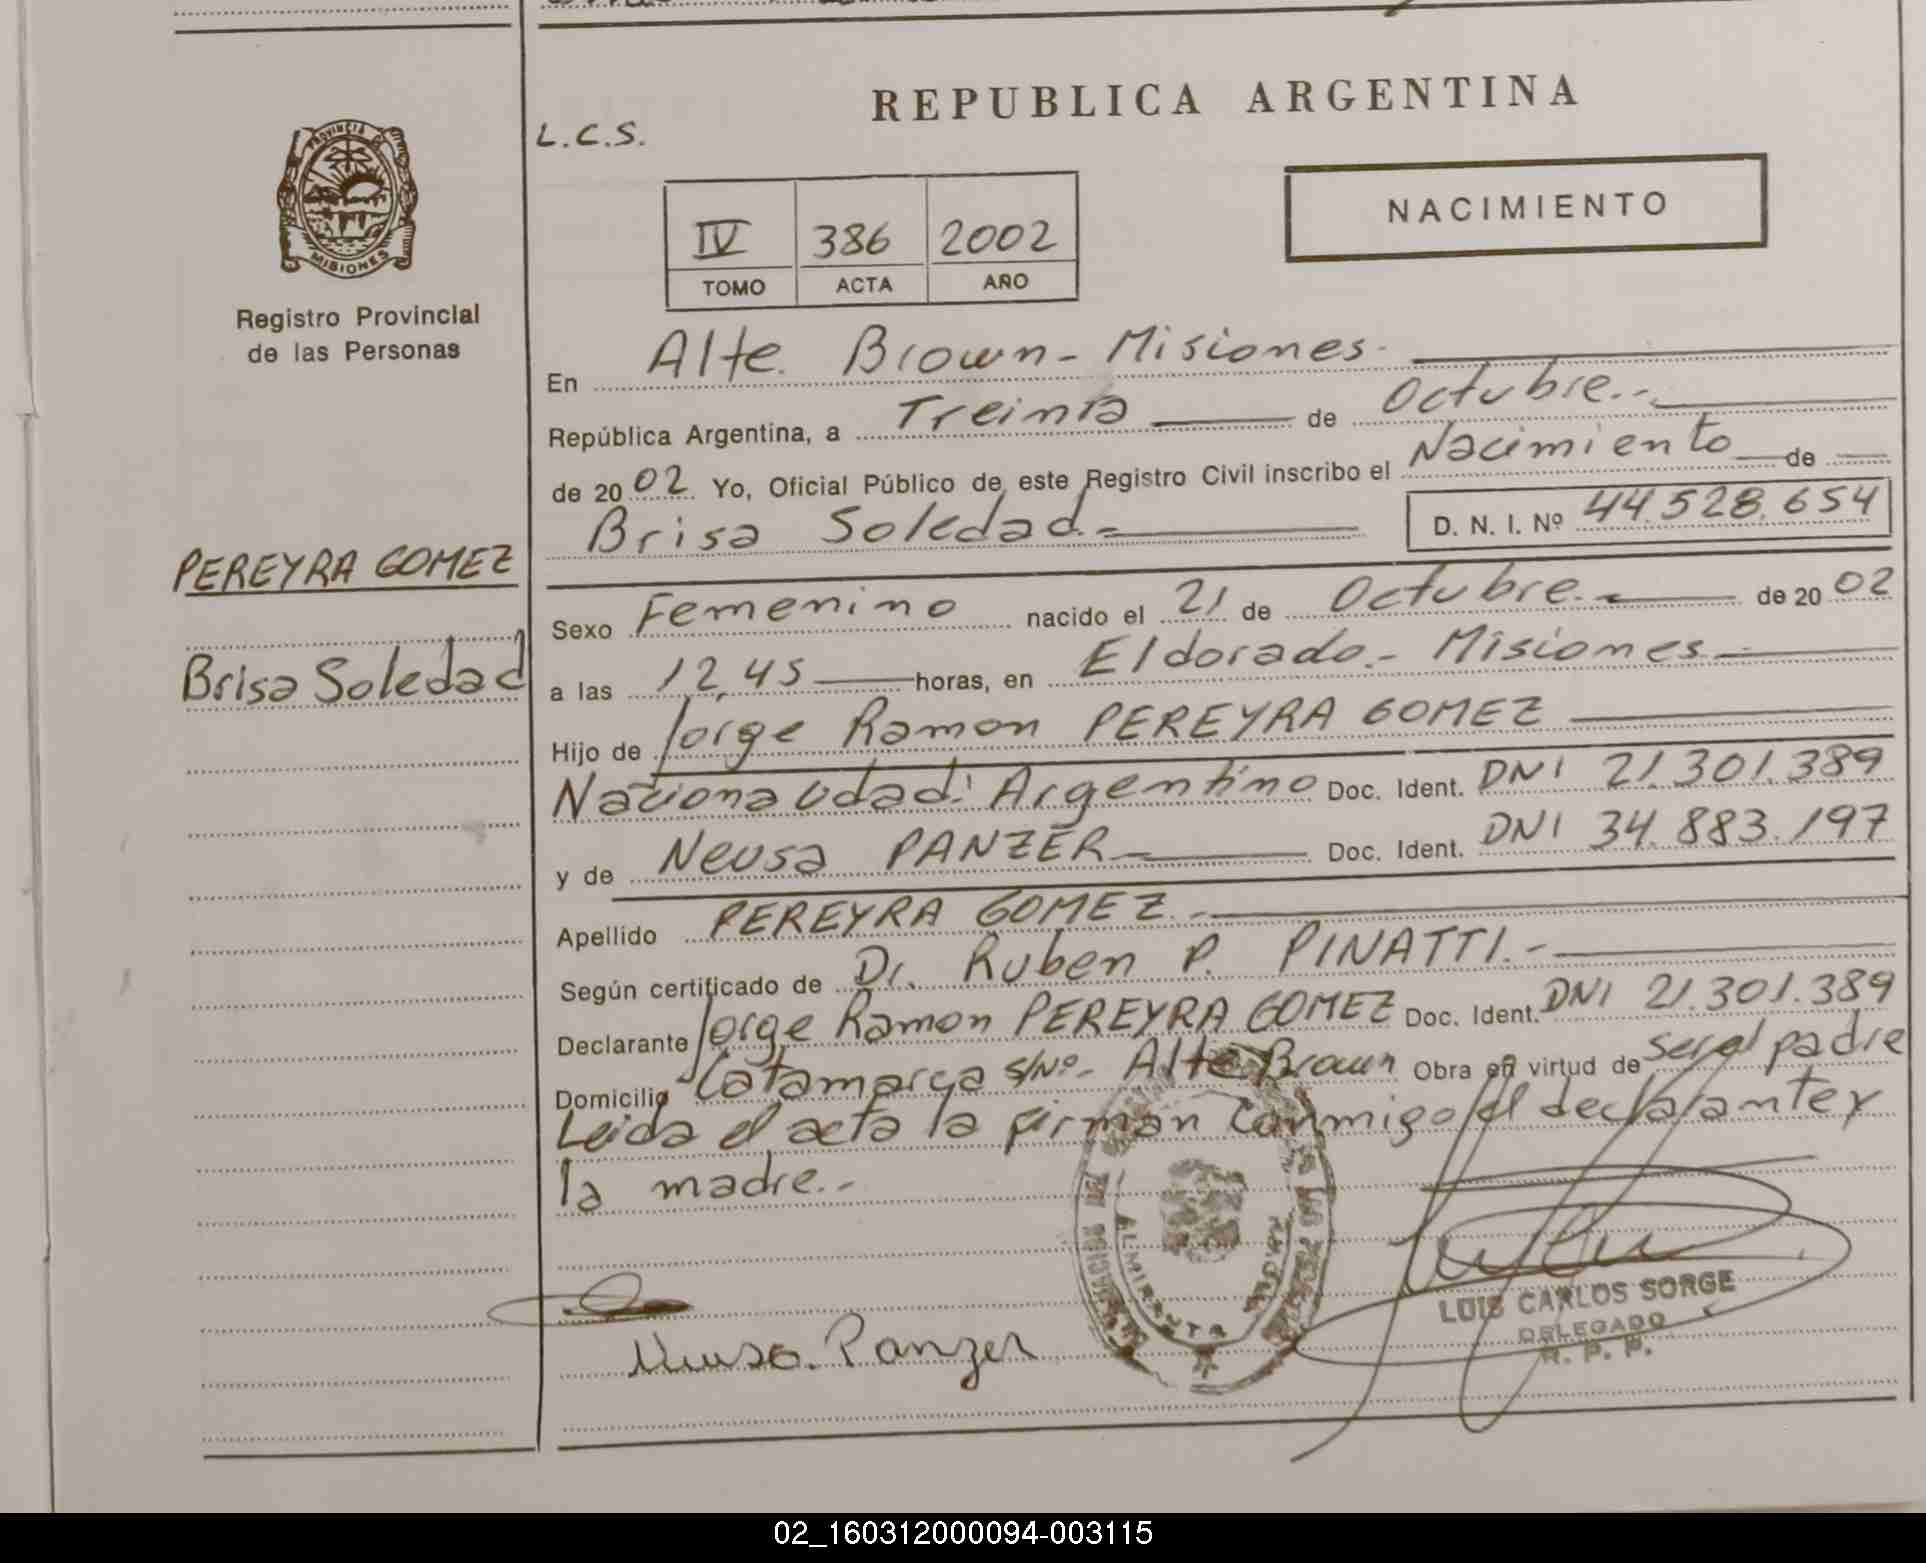 REPUBLICA ARGENTINA
L.C.S.
NACIMIENTO
IV 386 2002
TOMO ACTA AÑO
PROVINCIA DE
MISIONES
Registro Provincial
de las Personas
PEREYRA GOMEZ
Brisa Soledad
En Alte. Brown - Misiones.
República Argentina, a Treinta de Octubre.-
de 2002 Yo, Oficial Público de este Registro Civil inscribo el Nacimiento de
Brisa Soledad.- D. N. I. Nº 44.528.654
Sexo Femenino nacido el 21 de Octubre.- de 2002
a las 12,45 horas, en Eldorado.- Misiones
Hijo de Jorge Ramon PEREYRA GOMEZ
Nacionalidad: Argentino Doc. Ident. DNI 21.301.389
y de Neusa PANZER Doc. Ident. DNI 34.883.197
Apellido PEREYRA GOMEZ.-
Según certificado de Dr. Ruben P. PINATTI.-
Declarante Jorge Ramon PEREYRA GOMEZ Doc. Ident. DNI 21.301.389
Domicilio Catamarca s/Nº- Alte Brown Obra en virtud de ser el padre
Leida el acta la firman conmigo el declarante y
la madre.-
ALMIRANTE
LUIS CARLOS SORGE
DELEGADO
R. P. P.
Neusa. Panzer
02_160312000094-003115